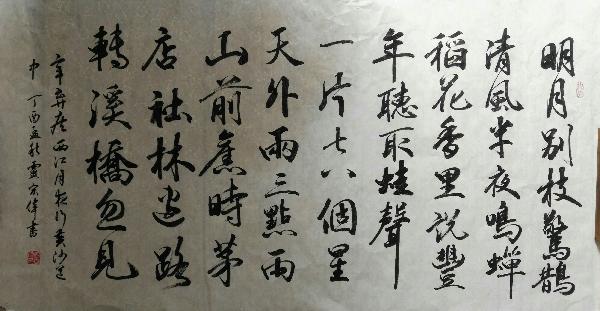 明月別枝驚鵲
清風半夜鳴蟬
稻花香里說豐
年聽取蛙聲
一片七八個星
天外兩三點雨
山前舊時茅
店社林邊路
轉溪橋忽見
辛棄疾西江月夜行黃沙道
中 丁酉孟秋靈偉書